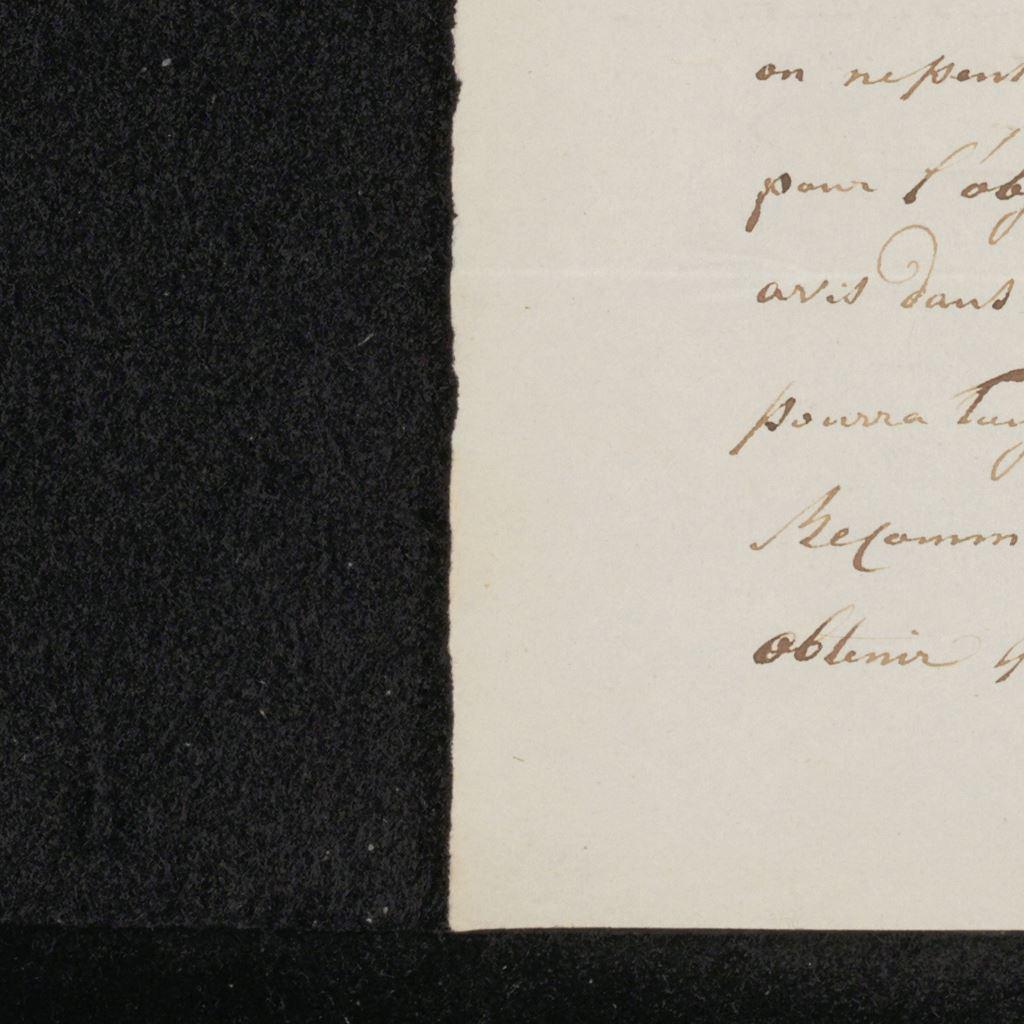 on ne peut
pour l'ob
avis dans
pourra luy
Recomm
obtenir